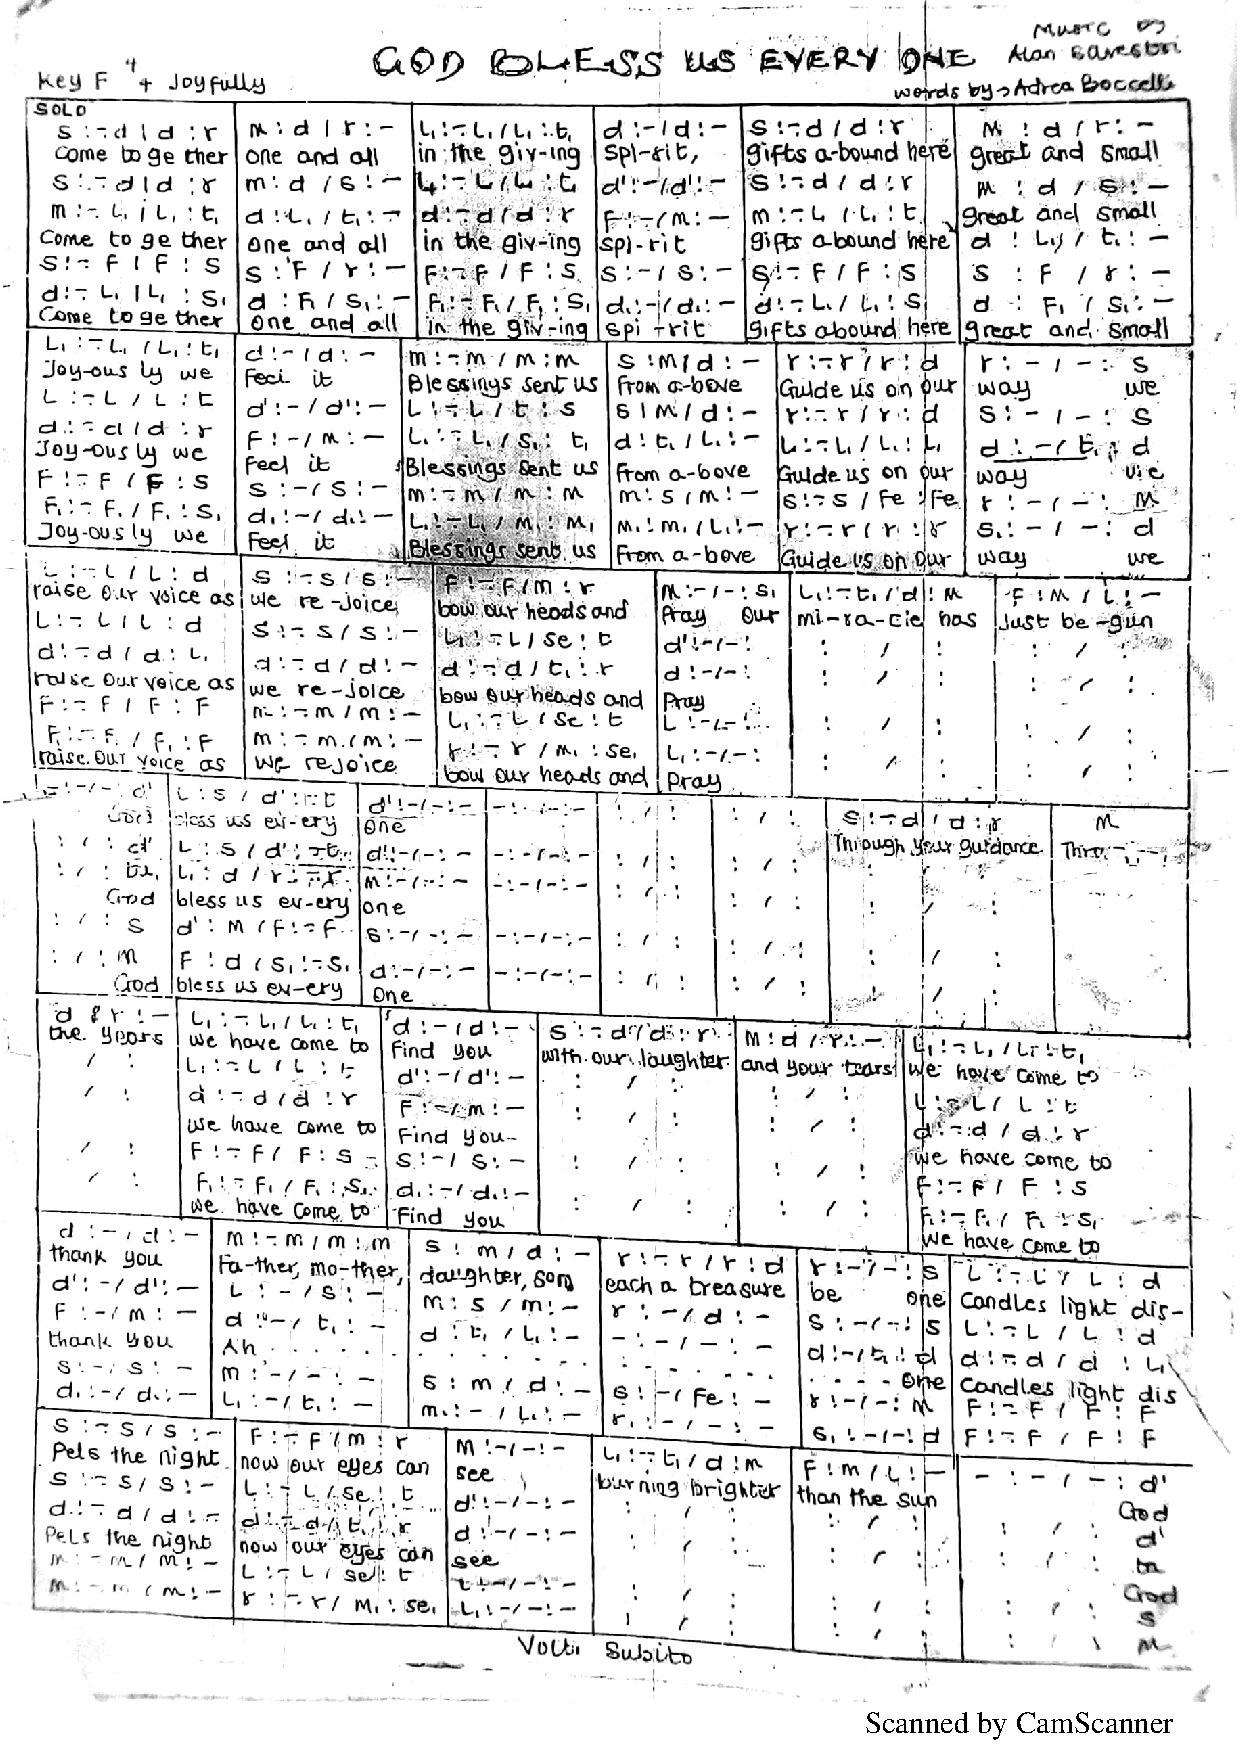 Music by
GOD BLESS US EVERY ONE
Key F 4/4 Joyfully
Alan
words by → Adrea Boccelli
SOLO
s :-d | d :r m : d / r : - L₁ :-L₁ / L₁ :t₁ d :- / d :- s :-d / d :r m : d / r : -
Come to ge ther one and all in the giv-ing spi-rit, gifts a-bound here great and small
s :-d | d :r m : d / s : - L :-L / L : t d' :- / d' :- s :-d / d :r m : d / s : -
m :-L₁ | L₁ :t₁ d : L₁ / t₁ : - d :-d / d :r F :- / m :- m :-L₁ / L₁ :t₁ great and small
Come to ge ther one and all in the giv-ing spi-rit gifts a-bound here d : L₁ / t₁ : -
s :-F | F : s s : F / r : - F :-F / F : s s :- / s :- s :-F / F : s s : F / r : -
d :-L₁ | L₁ : s₁ d : F₁ / s₁ : - F₁ :-F₁ / F₁ : s₁ d₁ :- / d₁ :- d :-L₁ / L₁ : s₁ d : F₁ / s₁ : -
Come to ge ther one and all in the giv-ing spi-rit gifts a bound here great and small
L₁ :-L₁ / L₁ : t₁ d :- / d :- m :-m / m : m s : m / d :- r :-r / r : d r : - / - : s
Joy-ous ly we Feel it Blessings sent us from a-bove Guide us on our way we
L :-L / L : t d' :- / d' :- L :-L / t : s s | m / d :- r :-r / r : d s : - / - : s
d :-d / d : r F :- / m :- L₁ :-L₁ / s₁ : t₁ d : t₁ / L₁ :- L :-L / L₁ : L₁ d : - / t₁ : d
Joy-ous ly we Feel it Blessings sent us from a-bove Guide us on our way we
F :-F / F : s s :- / s :- m :-m / m : m m : s / m :- s :-s / Fe : Fe r : - / - : m
F₁ :-F₁ / F₁ : s₁ d₁ :- / d₁ :- L₁ :-L₁ / m₁ : m₁ m₁ : m₁ / L₁ :- r :-r / r : r s₁ : - / - : d
Joy-ous ly we Feel it Blessings sent us From a-bove Guide us on our way we
L :-L / L : d s :-s / s :- F :-F / m : r m :- / - : s₁ L₁ :-t₁ / d : m F : m / L :-
raise our voice as we re-joice, bow our heads and Pray our mi-ra-cle has Just be-gun
L :-L / L : d s :-s / s :- L₁ :-L / se : t d' :- / - :
d' :-d / d : L₁ d :-d / d :- d :-d / t₁ : r d :- / - :
raise our voice as we re-joice bow our heads and Pray
F :-F / F : F m :-m / m :- L₁ :-L / se : t L :- / - :
F₁ :-F₁ / F₁ : F m :-m / m :- r :-r / m₁ : se₁ L₁ :- / - :
raise our voice as we rejoice bow our heads and pray
- : - / - : d' L : s / d' :-t d' :- / - :- - : - / - : - s :-d / d : r m
God bless us ev-ery one Through your guidance Thro
: / : d' L : s / d' :-t d' :- / - :- - : - / - : -
: / : L₁ : d / r :-r m :- / - :- - : - / - : -
God bless us ev-ery one
: / : s d' : m / F :-F s :- / - :- - : - / - : -
: / : m F : d / s₁ :-s₁ d :- / - :- - : - / - : -
God bless us ev-ery one
d r :- L₁ :-L₁ / L₁ : t₁ d :- / d :- s :-d / d : r m : d / r :- L₁ :-L₁ / L₁ : t₁
the years we have come to find you with our laughter and your tears we have come to
L₁ :-L / L : t d' :- / d' :- L :-L / L : t
d :-d / d : r F :- / m :- d :-d / d : r
we have come to Find you- we have come to
F :-F / F : s s :- / s :- F :-F / F : s
F₁ :-F₁ / F₁ : s₁ d₁ :- / d₁ :- F₁ :-F₁ / F₁ : s₁
we have come to find you we have come to
d :- / d :- m :-m / m : m s : m / d :- r :-r / r : d r :- / - : s L :-L / L : d
thank you Fa-ther, mo-ther, daughter, son each a treasure be one Candles light dis-
d' :- / d' :- L :- / s :- m : s / m :- r :- / d :- s :- / - : s L :-L / L : d
F :- / m :- d :- / t₁ :- d : t₁ / L₁ :- - : - / - : - d :- / t₁ : d d :-d / d : L₁
thank you Ah . . . . . . one Candles light dis
s :- / s :- m :- / - :- s : m / d :- s :- / Fe :- r :- / - : m F :-F / F : F
d₁ :- / d₁ :- L₁ :- / t₁ :- m₁ :- / L₁ :- r₁ :- / - :- s₁ :- / - : d F :-F / F : F
s :-s / s :- F :-F / m : r m :- / - :- L₁ :-t₁ / d : m F : m / L :- - : - / - : d'
Pels the night now our eyes can see burning brighter than the sun God
s :-s / s :- L :-L / se : t d' :- / - :- d'
d :-d / d :- d :-d / t₁ : r d :- / - :-
Pels the night now our eyes can see God
m :-m / m :- L :-L / se : t L :- / - :- s
m :-m / m :- r :-r / m₁ : se₁ L₁ :- / - :- m
Volti Subito
Scanned by CamScanner